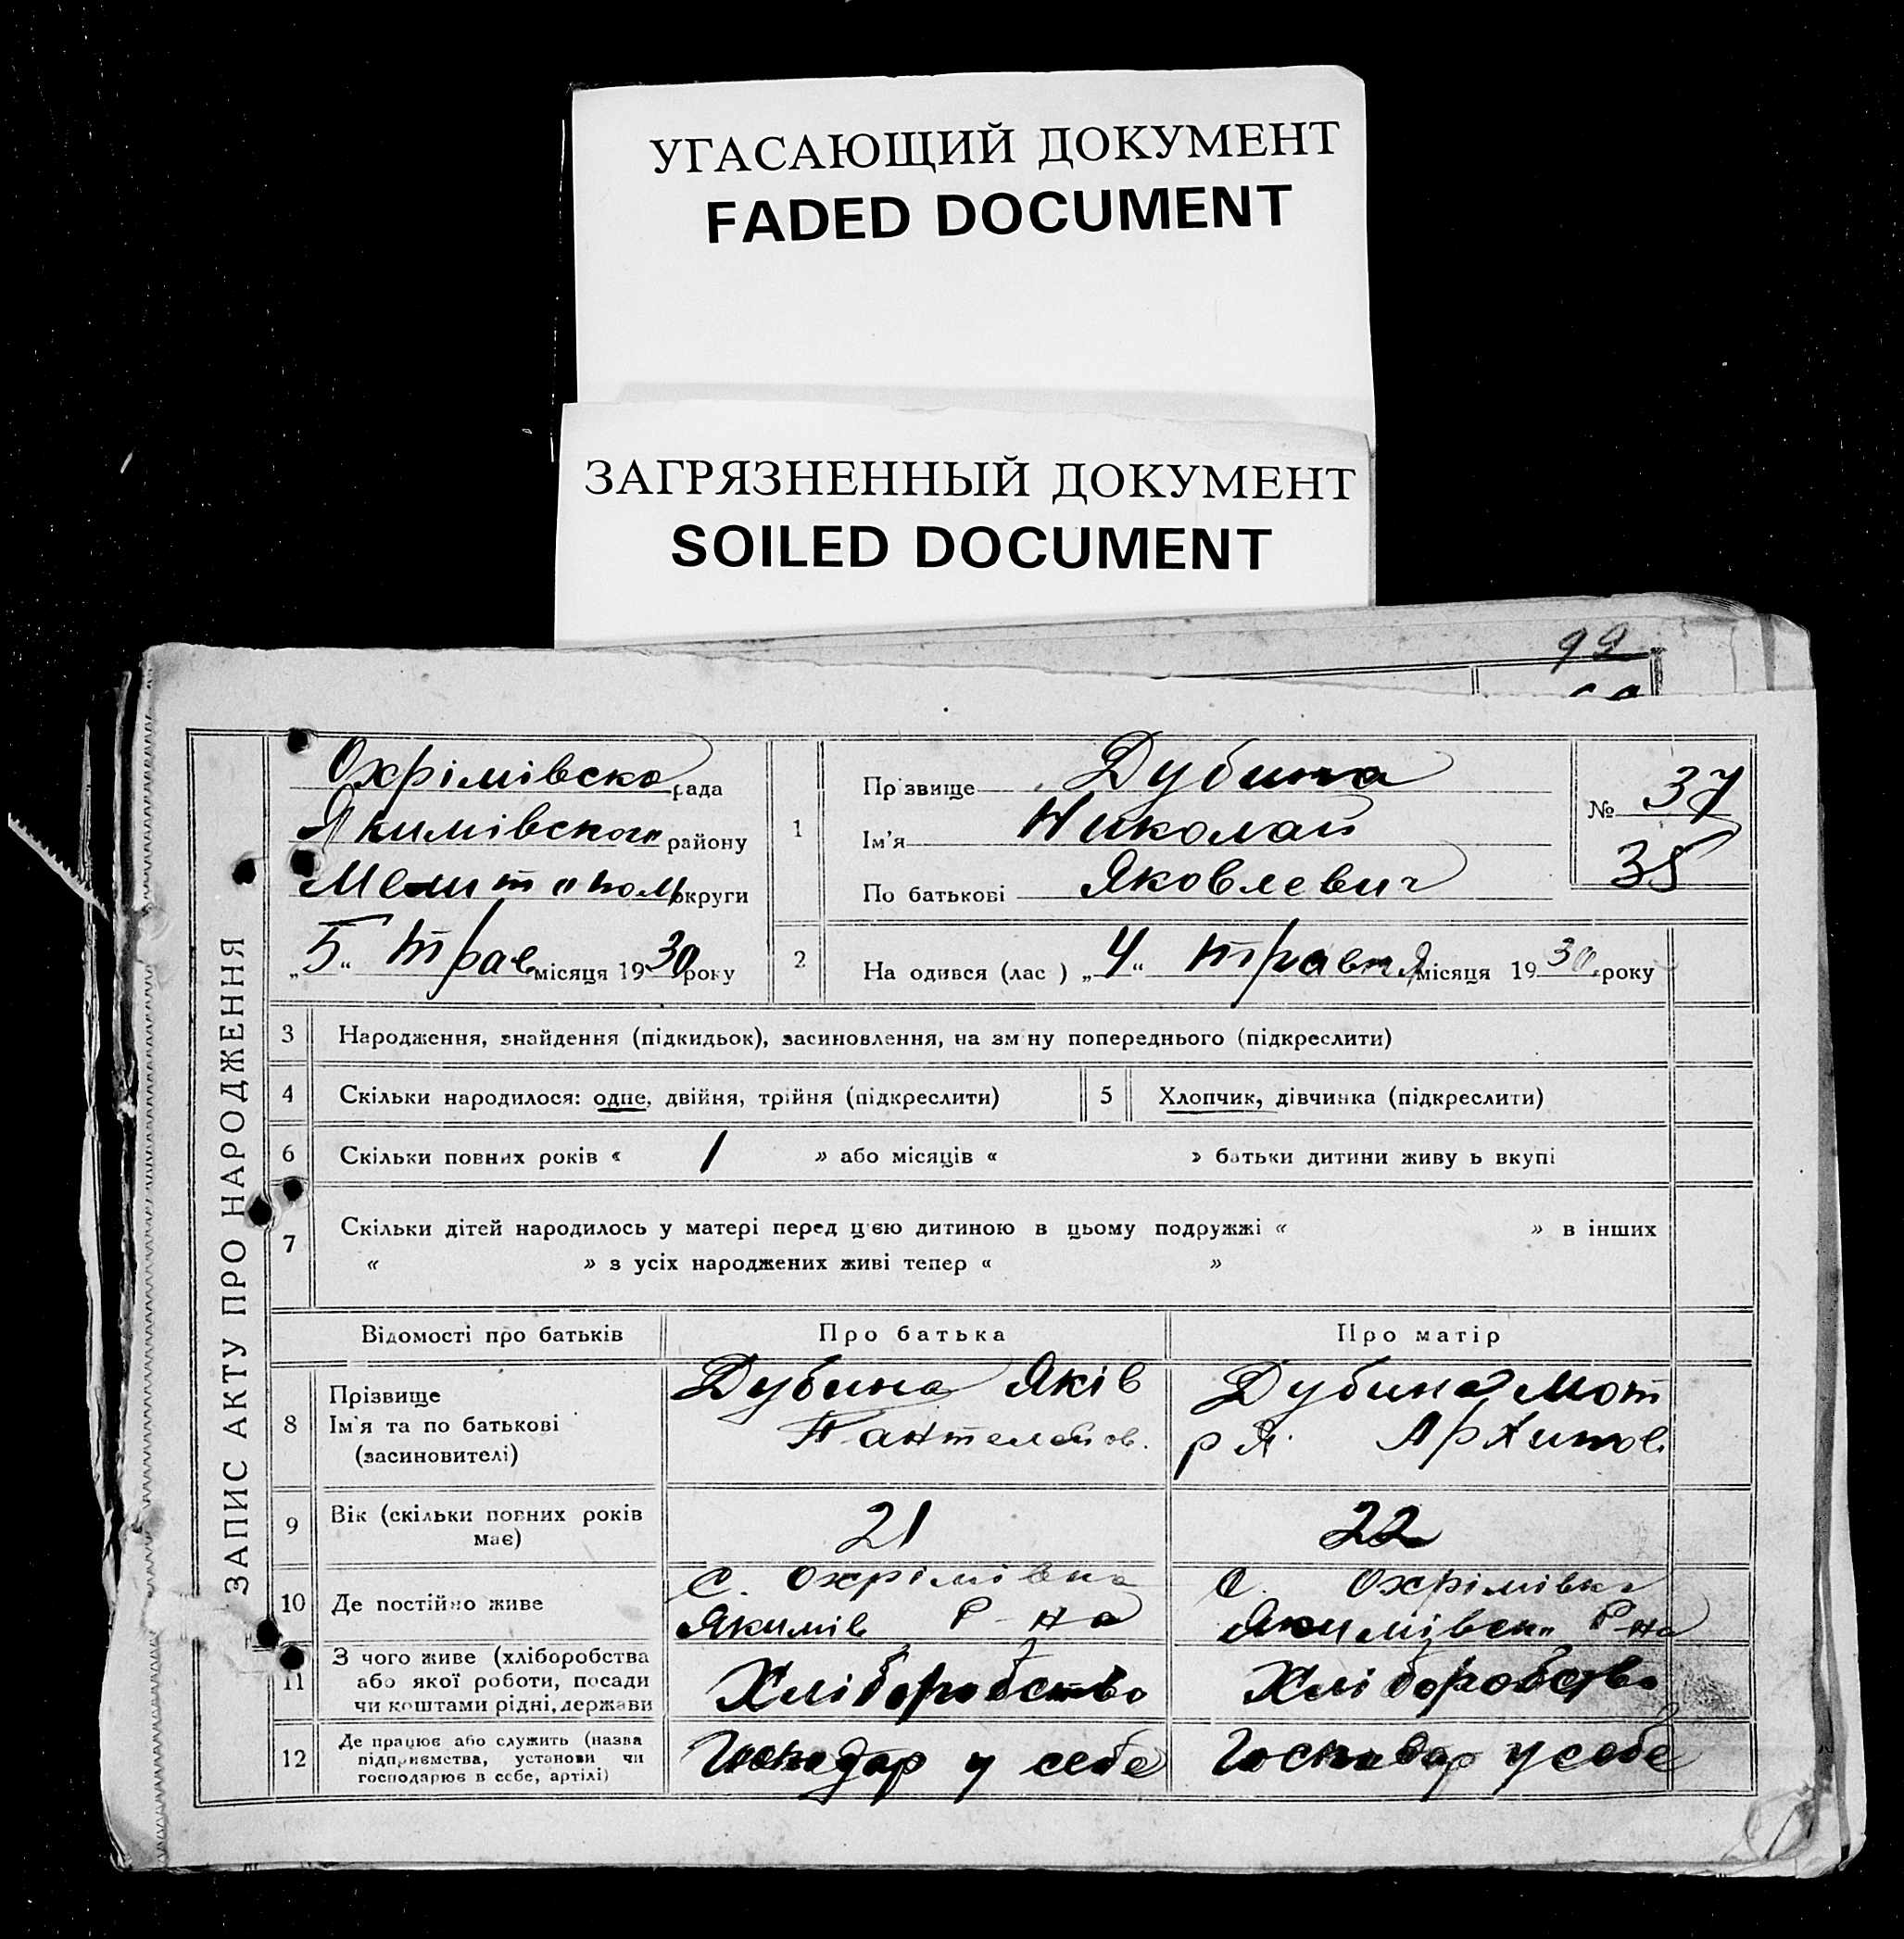 УГАСАЮЩИЙ ДОКУМЕНТ
FADED DOCUMENT
ЗАГРЯЗНЕННЫЙ ДОКУМЕНТ
SOILED DOCUMENT
92
ЗАПИС АКТУ ПРО НАРОДЖЕННЯ
Охрімівська рада
Якимівского району
Мелитополь округи
„5“ трав місяця 1930 року
1
Прізвище Дубина
Ім'я Николай
По батькові Яковлевич
№ 37
35
2
На одився (лас ) „4“ травня місяця 1930 року
3 Народження, знайдення (підкидьок), засиновлення, на зміну попереднього (підкреслити)
4 Скільки народилося: одне, двійня, трійня (підкреслити)
5 Хлопчик, дівчинка (підкреслити)
6 Скільки повних років « 1 » або місяців « » батьки дитини живу ь вкупі
7 Скільки дітей народилось у матері перед цією дитиною в цьому подружжі « » в інших
« » з усіх народжених живі тепер « »
Відомості про батьків Про батька Про матір
8 Прізвище
Ім'я та по батькові
(засиновителі)
Дубина Яків
Пантелейов.
Дубина Мот
ря Архипов.
9 Вік (скільки повних років
має)
21
22
10 Де постійно живе
С. Охрімівка
Якимів Р-на
С. Охрімівка
Якимівськ Р-на
11 З чого живе (хліборобства
або якої роботи, посади
чи коштами рідні, держави
Хліборобство
Хліборобство
12 Де працює або служить (назва
підприємства, установи чи
господарює в себе, артілі)
Господар у себе
Господар у себе